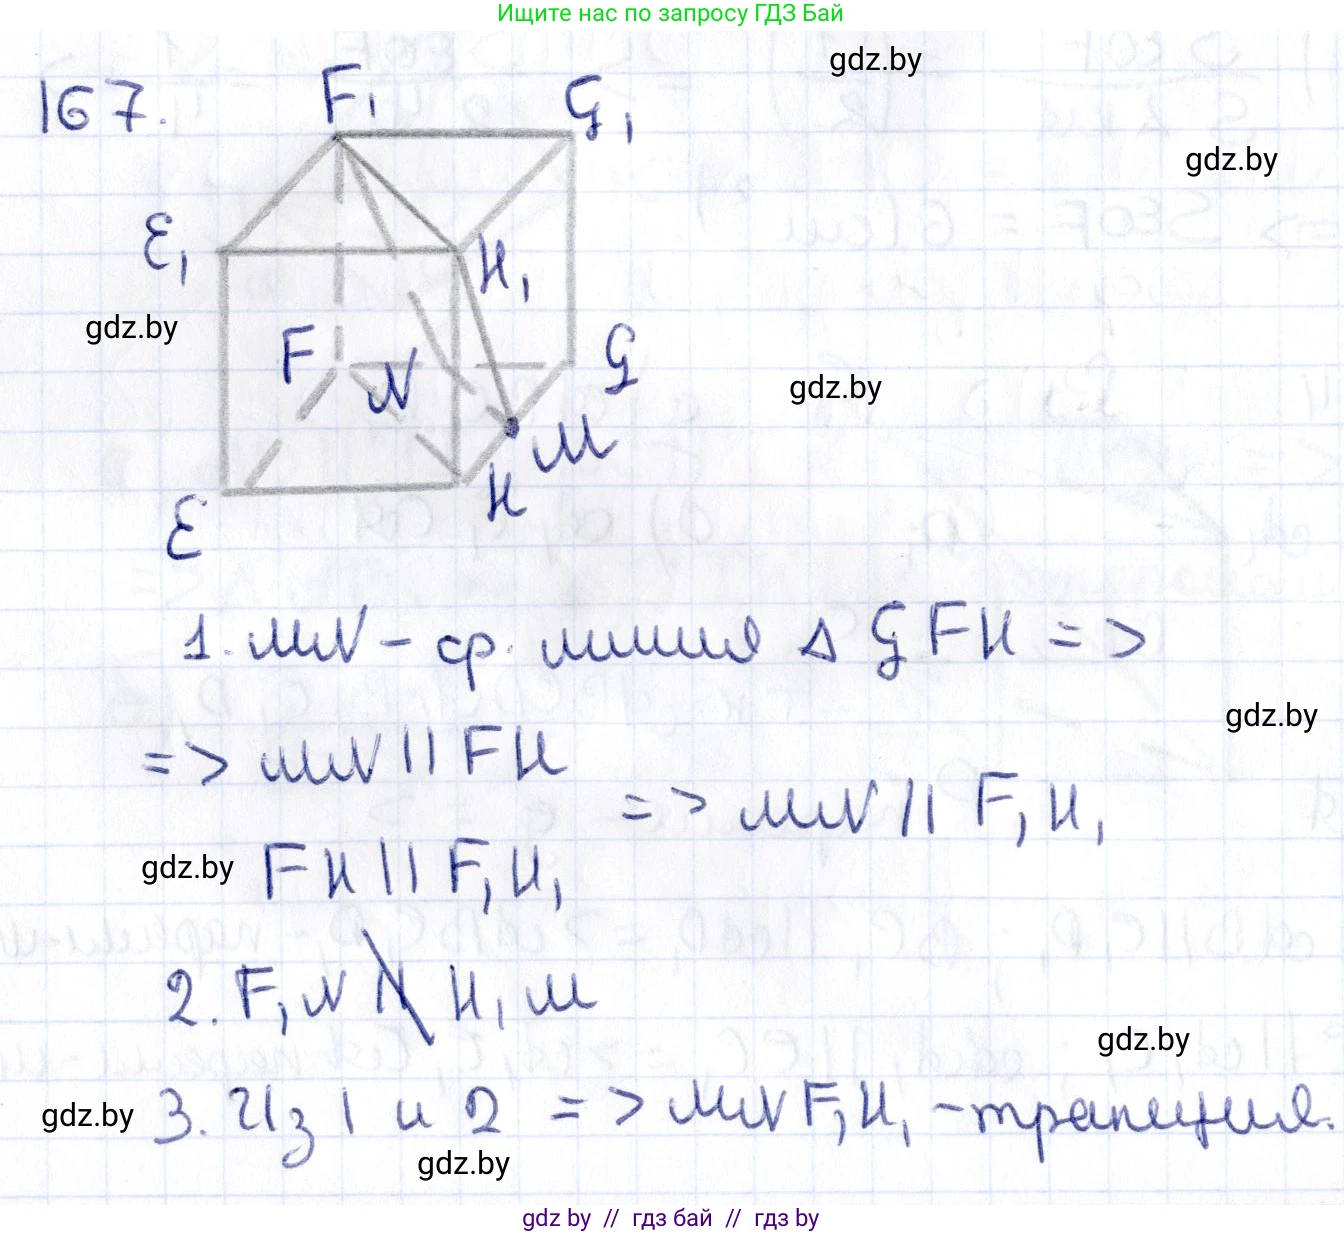 Ищите нас по запросу ГДЗ Бай
gdz.by
167.
F₁
G₁
gdz.by
E₁
H₁
gdz.by
F
N
G
gdz.by
M
H
E
1. MN – ср. линия Δ GFH =>
gdz.by
=> MN || FH
=> MN || F₁H₁
gdz.by
FH || F₁H₁
2. F₁N ∦ H₁M
gdz.by
3. Из 1 и 2 => MNF₁H₁ – трапеция.
gdz.by
gdz.by
gdz by // гдз бай // гдз by